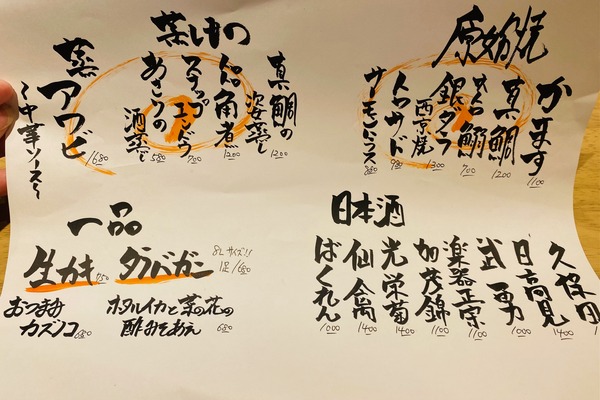 原始焼
かます
1100
真鯛
1200
とろ鰯
700
銀ダラ
西京焼
1300
980
サーモンハラス
880
蒸しもの
真鯛の
姿蒸し
1200
トロトロ角煮
1200
スナップ
エンドウ
700
あさりの
酒蒸し
580
蒸アワビ
〜中華ソース〜
1680
日本酒
久保田
日高見
1400
武勇
1000
楽器正宗
1100
加茂錦
1100
光栄菊
1400
仙禽
1400
ばくれん
1000
一品
生カキ
タラバガニ
8Lサイズ!!
おつまみ
カズノコ 680
ホタルイカと菜の花の
酢みそあえ 680